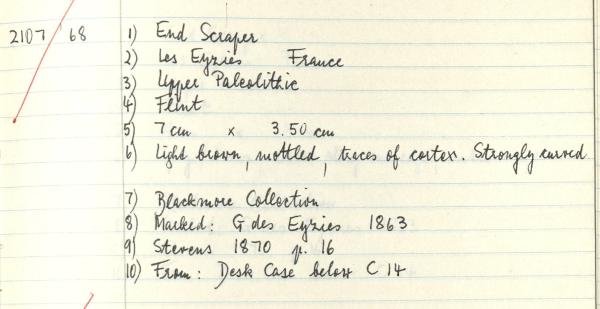 2107 / 68 1) End Scraper
2) Les Eyzies France
3) Upper Paleolithic
4) Flint
5) 7 cm x 3.50 cm
6) Light brown, mottled, traces of cortex. Strongly curved
7) Blackmore Collection
8) Marked: G des Eyzies 1863
9) Stevens 1870 p. 16
10) From: Desk Case below C 14